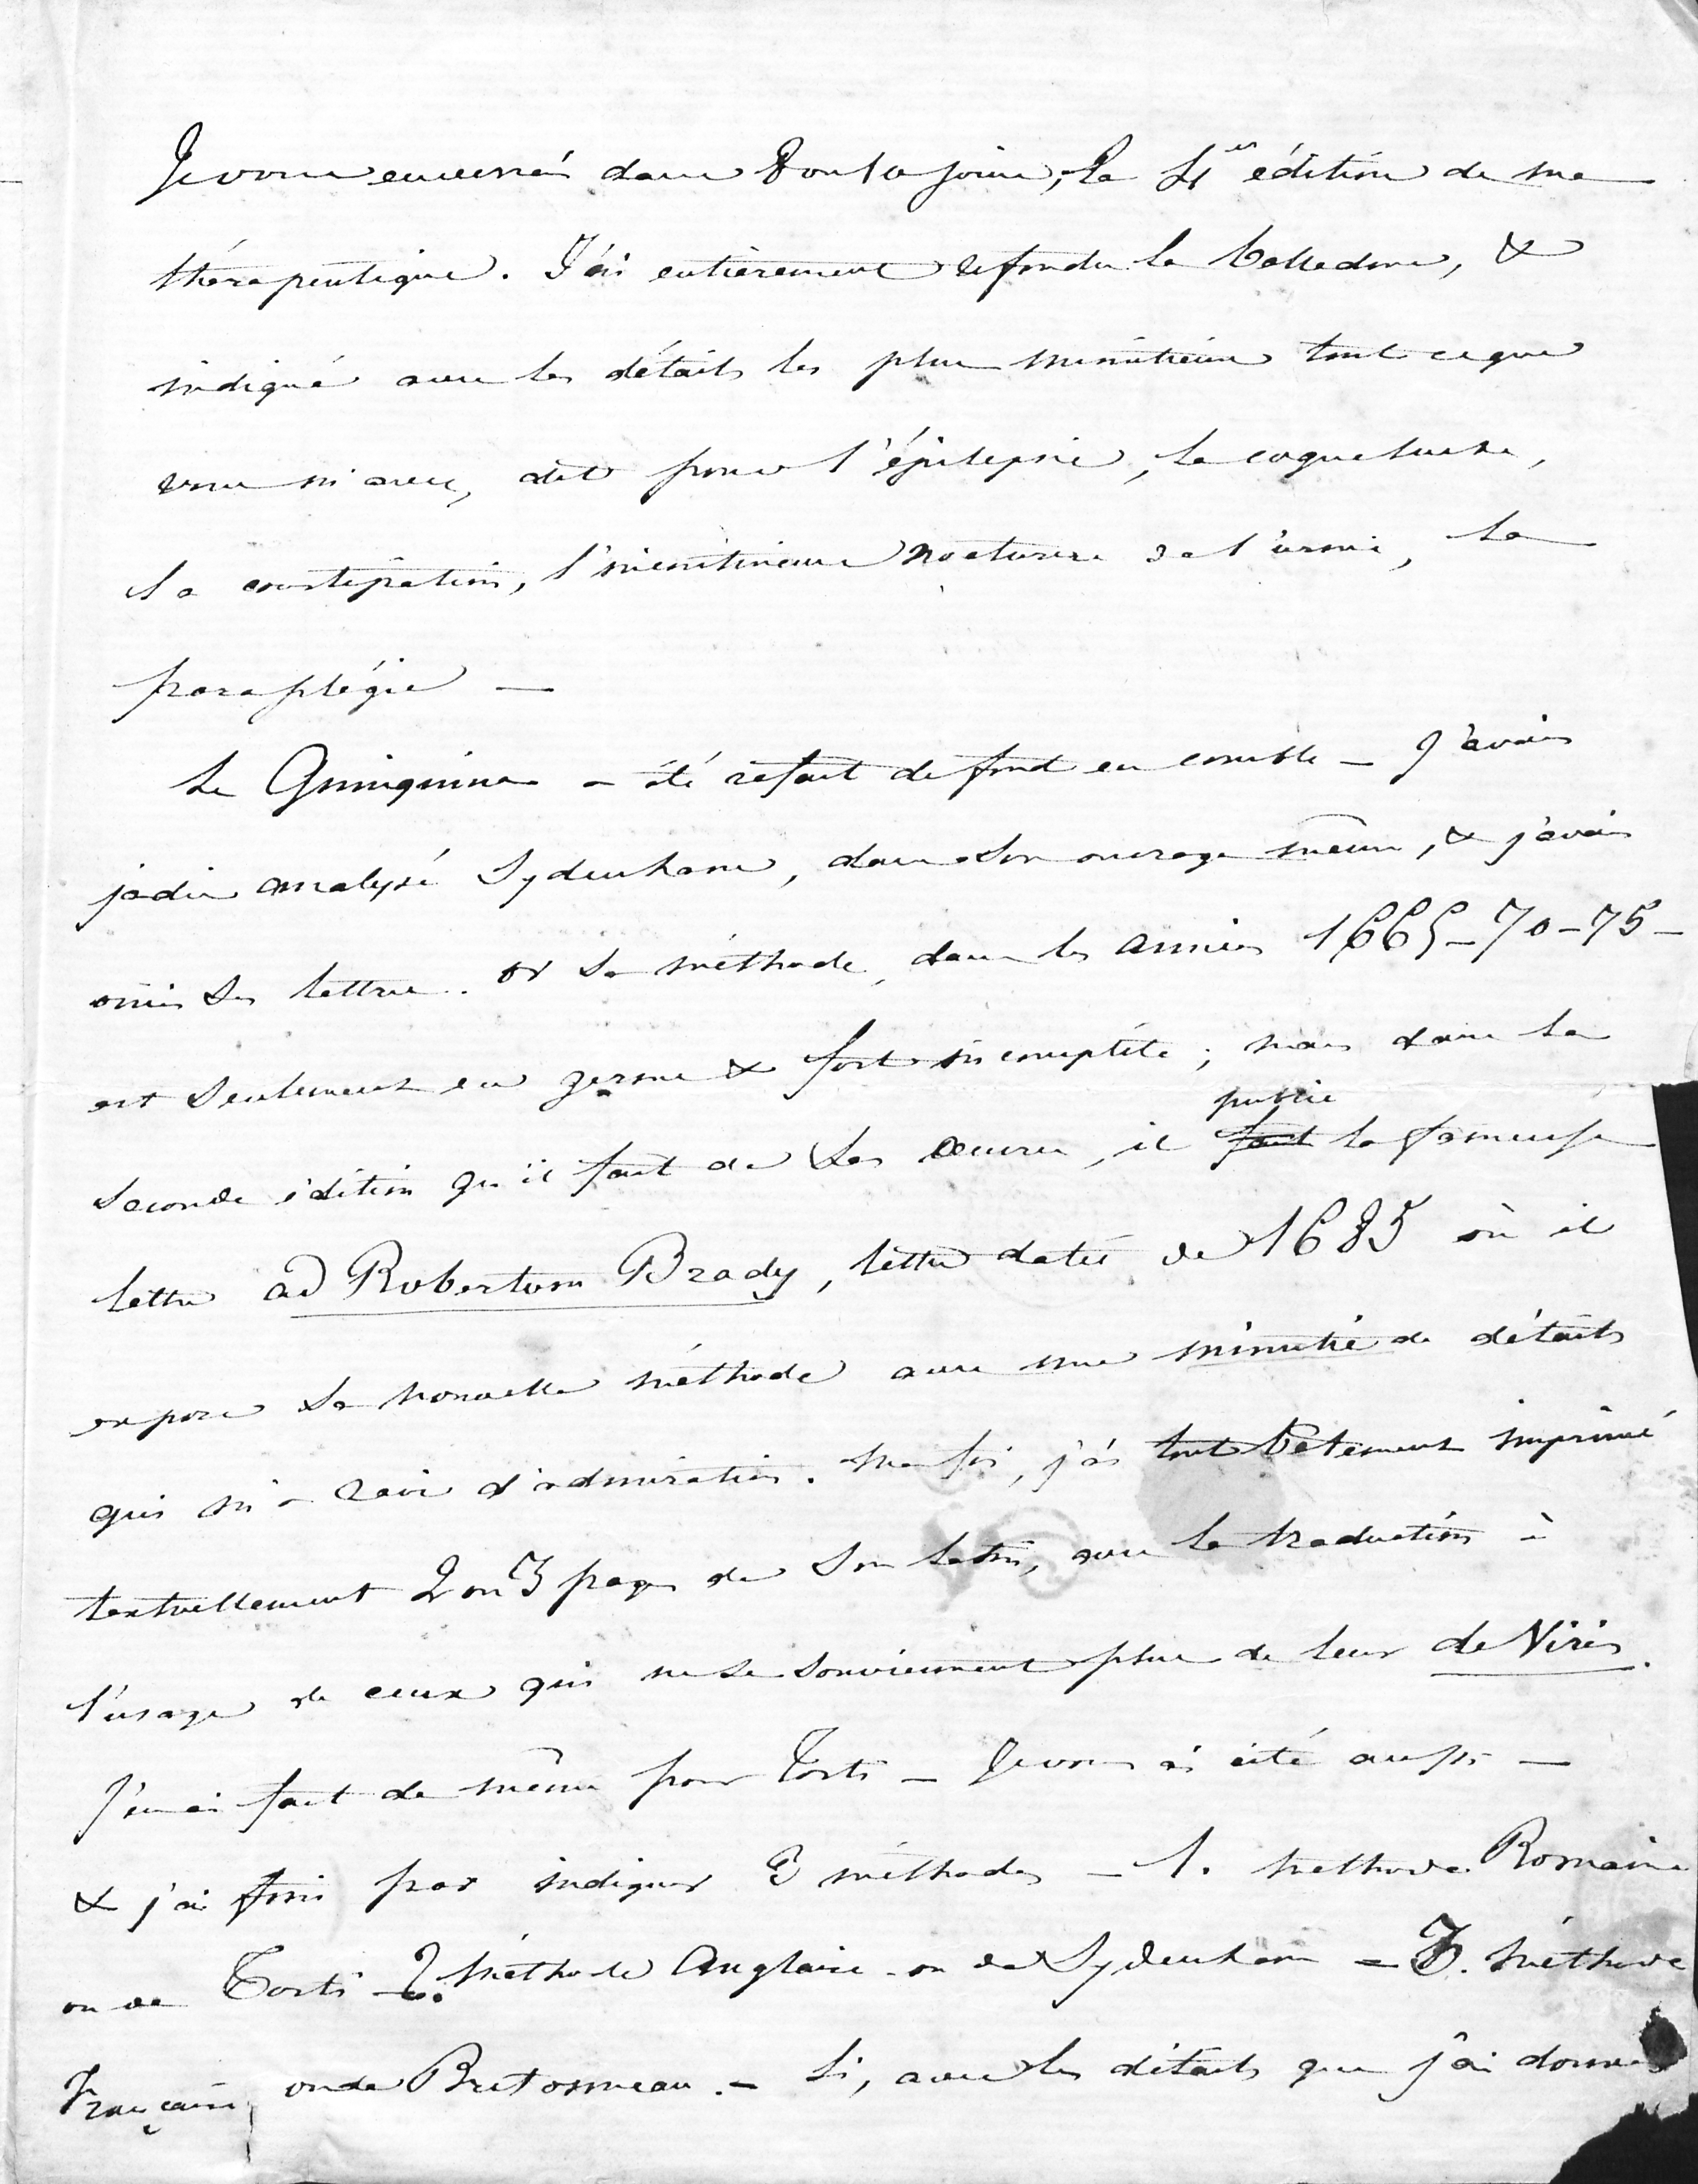 Je vous enverrai dans huit jours, la 4e édition de ma
thérapeutique. J'ai entièrement refondu la belladone, &
indiqué avec les détails les plus minutieux tout ce que
vous m'avez dit pour l'épilepsie, la coqueluche,
la constipation, l'incontinence nocturne de l'urine, la
paraplégie —
Le Quinquina a été refait de fond en comble — J'avais
jadis analysé Sydenham, dans son ouvrage même, & j'avais
omis ses lettres. or sa méthode, dans les années 1665-70-75-
est seulement en germe & fort incomplète ; mais dans la
seconde édition qu'il fait de ses œuvres, il publie la fameuse
lettre ad Robertum Brady, lettre datée de 1685 où il
expose sa nouvelle méthode avec une minutie de détails
qui m'a ravi d'admiration. Ma foi, j'ai tout bêtement imprimé
textuellement 2 ou 3 pages de son latin, avec la traduction à
l'usage de ceux qui ne se souviennent plus de leur de Viris.
J'en ai fait de même pour Torti — Je vous ai cité aussi —
& j'ai fini par indiquer 3 méthodes — 1. méthode Romaine
ou de Torti — 2. Méthode Anglaise ou de Sydenham — 3. Méthode
Française ou de Bretonneau. — Si, avec les détails que j'ai donnés